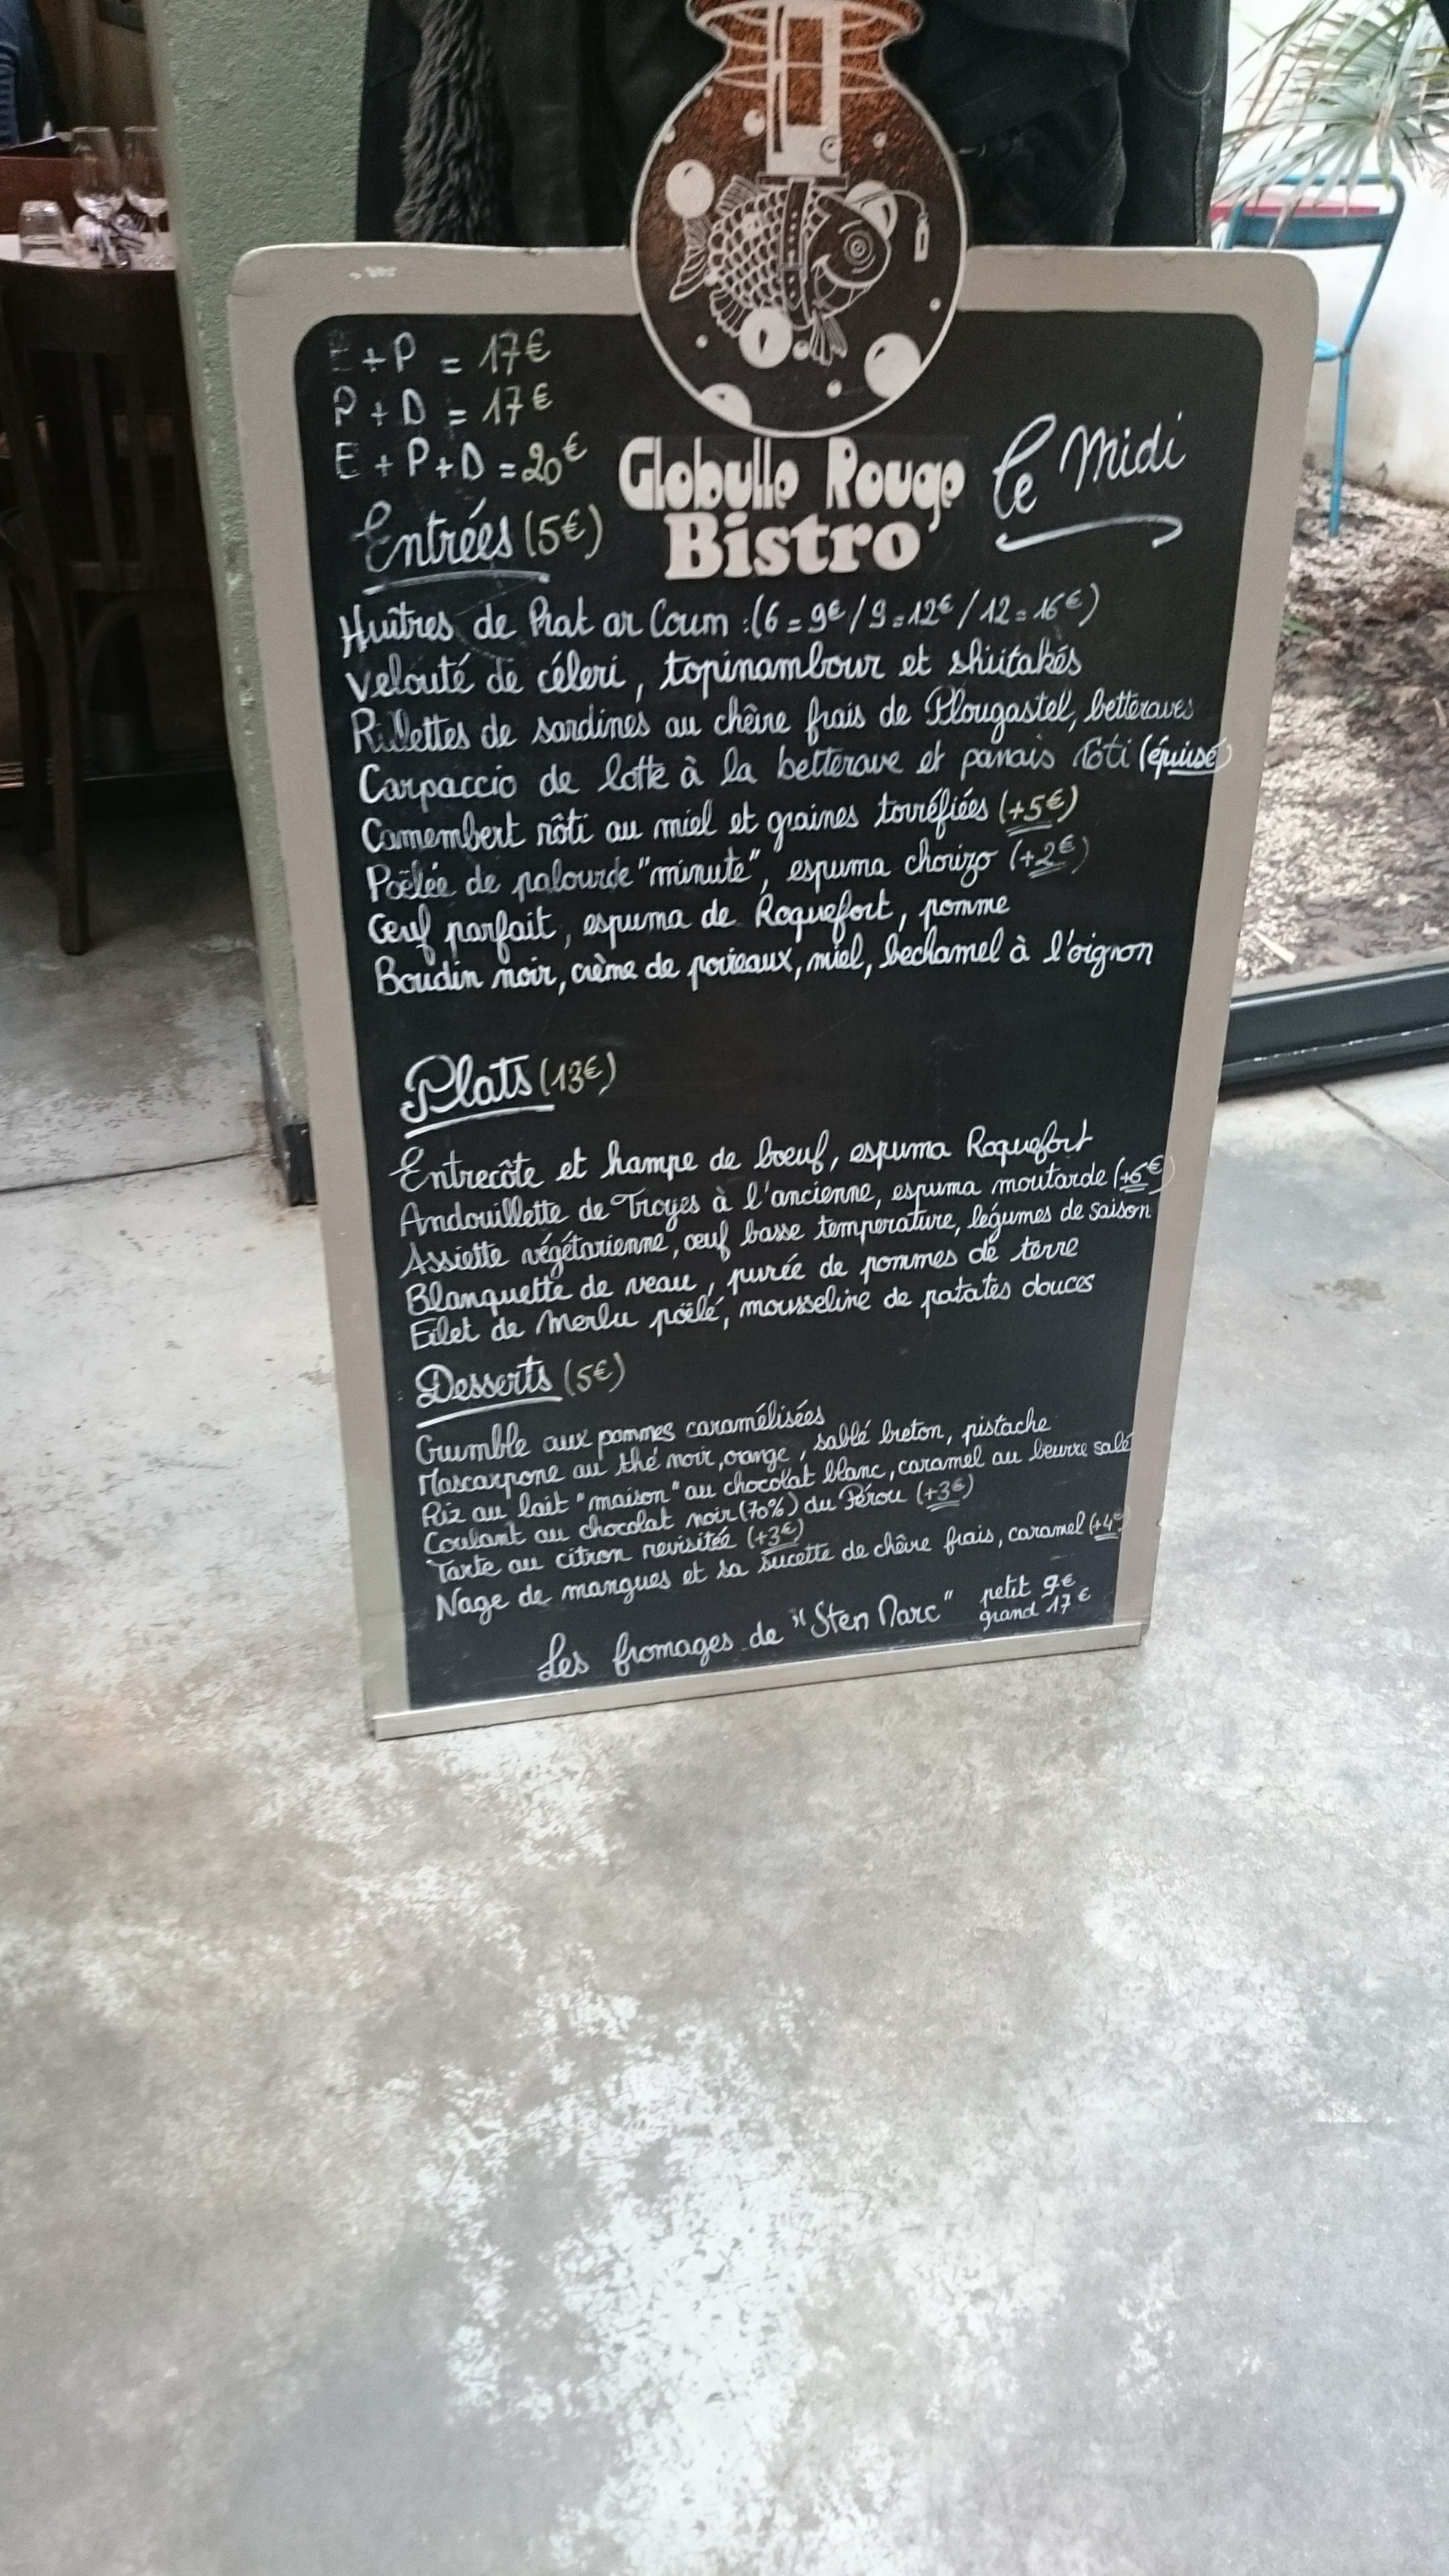 E + P = 17€
P + D = 17€
E + P + D = 20€
Globulle Rouge
Bistro
Le Midi
Entrées (5€)
Huîtres de Prat ar Coum : (6 = 9€ / 9 = 12€ / 12 = 16€)
Velouté de céleri, topinambour et shiitakés
Rillettes de sardines au chèvre frais de Plougastel, betteraves
Carpaccio de lotte à la betterave et panais rôti (épuisé)
Camembert rôti au miel et graines torréfiées (+5€)
Poêlée de palourde "minute", espuma chorizo (+2€)
Œuf parfait, espuma de Roquefort, pomme
Boudin noir, crème de poireaux, miel, bechamel à l'oignon
Plats (13€)
Entrecôte et hampe de bœuf, espuma Roquefort
Andouillette de Troyes à l'ancienne, espuma moutarde (+6€)
Assiette végétarienne, œuf basse temperature, légumes de saison
Blanquette de veau, purée de pommes de terre
Filet de Merlu poêlé, mousseline de patates douces
Desserts (5€)
Crumble aux pommes caramélisées
Mascarpone au thé noir, orange, sablé breton, pistache
Riz au lait "maison" au chocolat blanc, caramel au beurre salé
Coulant au chocolat noir (70%) du Pérou (+3€)
Tarte au citron revisitée (+3€)
Nage de mangues et sa sucette de chèvre frais, caramel (+4€)
Les fromages de "Sten Marc" petit 9€
grand 17€